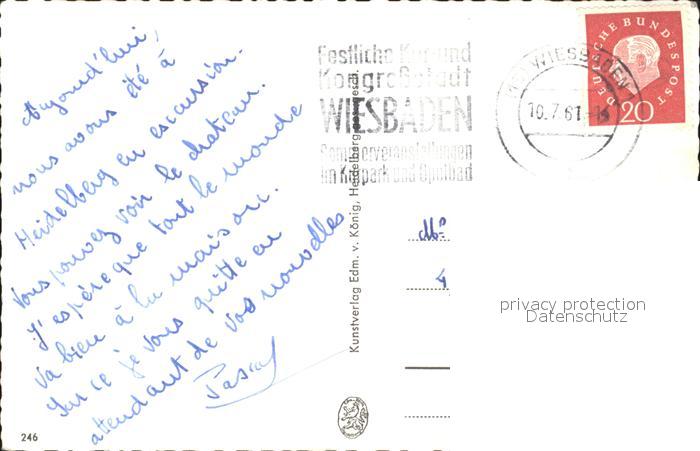 Aujourd'hui,
nous avons été à
Heidelberg en excursion.
Vous pouvez voir le chateau.
J'espère que tout le monde
va bien à la maison.
Sur ce je vous quitte en
attendant de vos nouvelles
Pascal
246
Kunstverlag Edm. v. König, Heidelberg
Festliche Kur- und
Kongreßstadt
WIESBADEN
Sommerveranstaltungen
im Kurpark und Opelbad
WIESBADEN
10.7.61
DEUTSCHE BUNDESPOST
20
4
privacy protection
Datenschutz